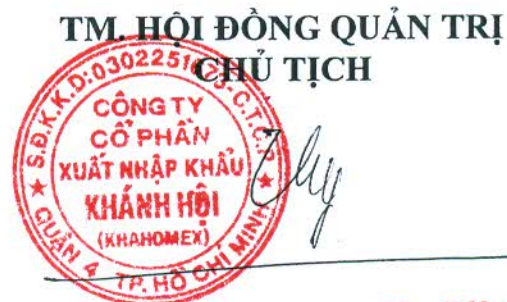 TM. HỘI ĐỒNG QUẢN TRỊ
CHỦ TỊCH
CÔNG TY
CỔ PHẦN
XUẤT NHẬP KHẨU
KHÁNH HỘI
(KHAHOMEX)
QUẬN 4 TP. HỒ CHÍ MINH